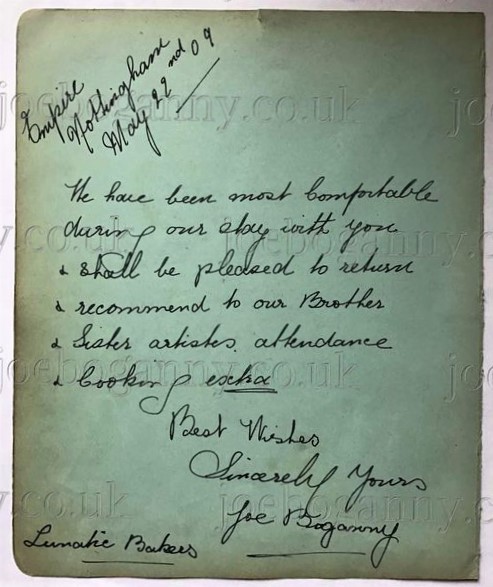 Empire
Nottingham
May 22nd 09
We have been most Comfortable
during our stay with you
& shall be pleased to return
& recommend to our Brother
& Sister artistes. attendance
& Cooking extra
Best Wishes
Sincerely Yours
Joe Boganny
Lunatic Bakers
joeboganny.co.uk